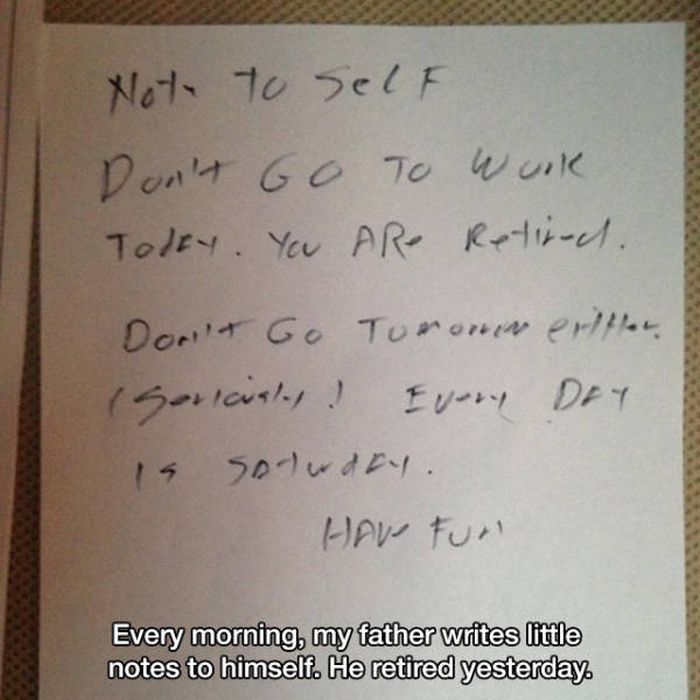 Note to Self
Don't Go To Work
Today. You ARe Retired.
Don't Go Tomorrow either.
(Seriously) Every DAY
is Saturday.
HAVe Fun
Every morning, my father writes little
notes to himself. He retired yesterday.